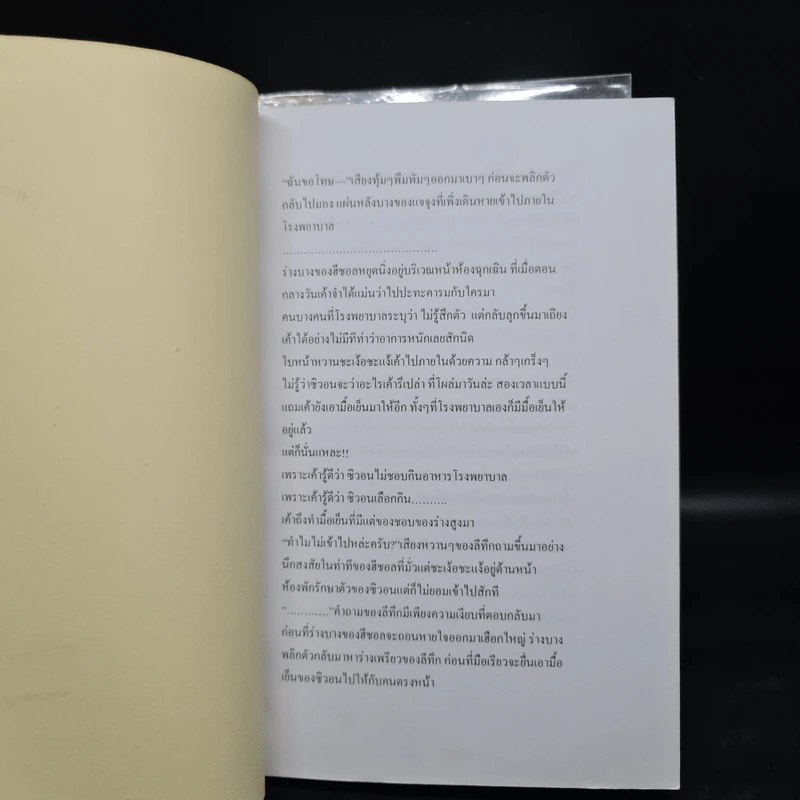 “ฉันขอโทษ—”เสียงทุ้มๆพึมพัมๆออกมาเบาๆ ก่อนจะพลิกตัว
กลับไปมอง แผ่นหลังบางของแจจุงที่เพิ่งเดินหายเข้าไปภายใน
โรงพยาบาล
...............................................
ร่างบางของฮีชอลหยุดนิ่งอยู่บริเวณหน้าห้องฉุกเฉิน ที่เมื่อตอน
กลางวันเค้าจำได้แม่นว่าไปปะทะคารมกับใครมา
คนบางคนที่โรงพยาบาลระบุว่า ไม่รู้สึกตัว แต่กลับลุกขึ้นมาเถียง
เค้าได้อย่างไม่มีทีท่าว่าอาการหนักเลยสักนิด
ใบหน้าหวานชะเง้อชะแง้เค้าไปภายในด้วยความ กล้าๆเกร็งๆ
ไม่รู้ว่าซิวอนจะว่าอะไรเค้ารึเปล่า ที่โผล่มาวันล่ะ สองเวลาแบบนี้
แถมเค้ายังเอามื้อเย็นมาให้อีก ทั้งๆที่โรงพยาบาลเองก็มีมื้อเย็นให้
อยู่แล้ว
แต่ก็นั่นแหละ!!
เพราะเค้ารู้ดีว่า ซิวอนไม่ชอบกินอาหารโรงพยาบาล
เพราะเค้ารู้ดีว่า ซิวอนเลือกกิน..........
เค้าถึงทำมื้อเย็นที่มีแต่ของชอบของร่างสูงมา
“ทำไมไม่เข้าไปหล่ะครับ?”เสียงหวานๆของลีทึกถามขึ้นมาอย่าง
นึกสงสัยในท่าทีของฮีชอลที่มัวแต่ชะเง้อชะแง้อยู่ด้านหน้า
ห้องพักรักษาตัวของซิวอนแต่ก็ไม่ยอมเข้าไปสักที
“............”คำถามของลีทึกมีเพียงความเงียบที่ตอบกลับมา
ก่อนที่ร่างบางของฮีชอลจะถอนหายใจออกมาเฮือกใหญ่ ร่างบาง
พลิกตัวกลับมาหาร่างเพรียวของลีทึก ก่อนที่มือเรียวจะยื่นเอามื้อ
เย็นของซิวอนไปให้กับคนตรงหน้า